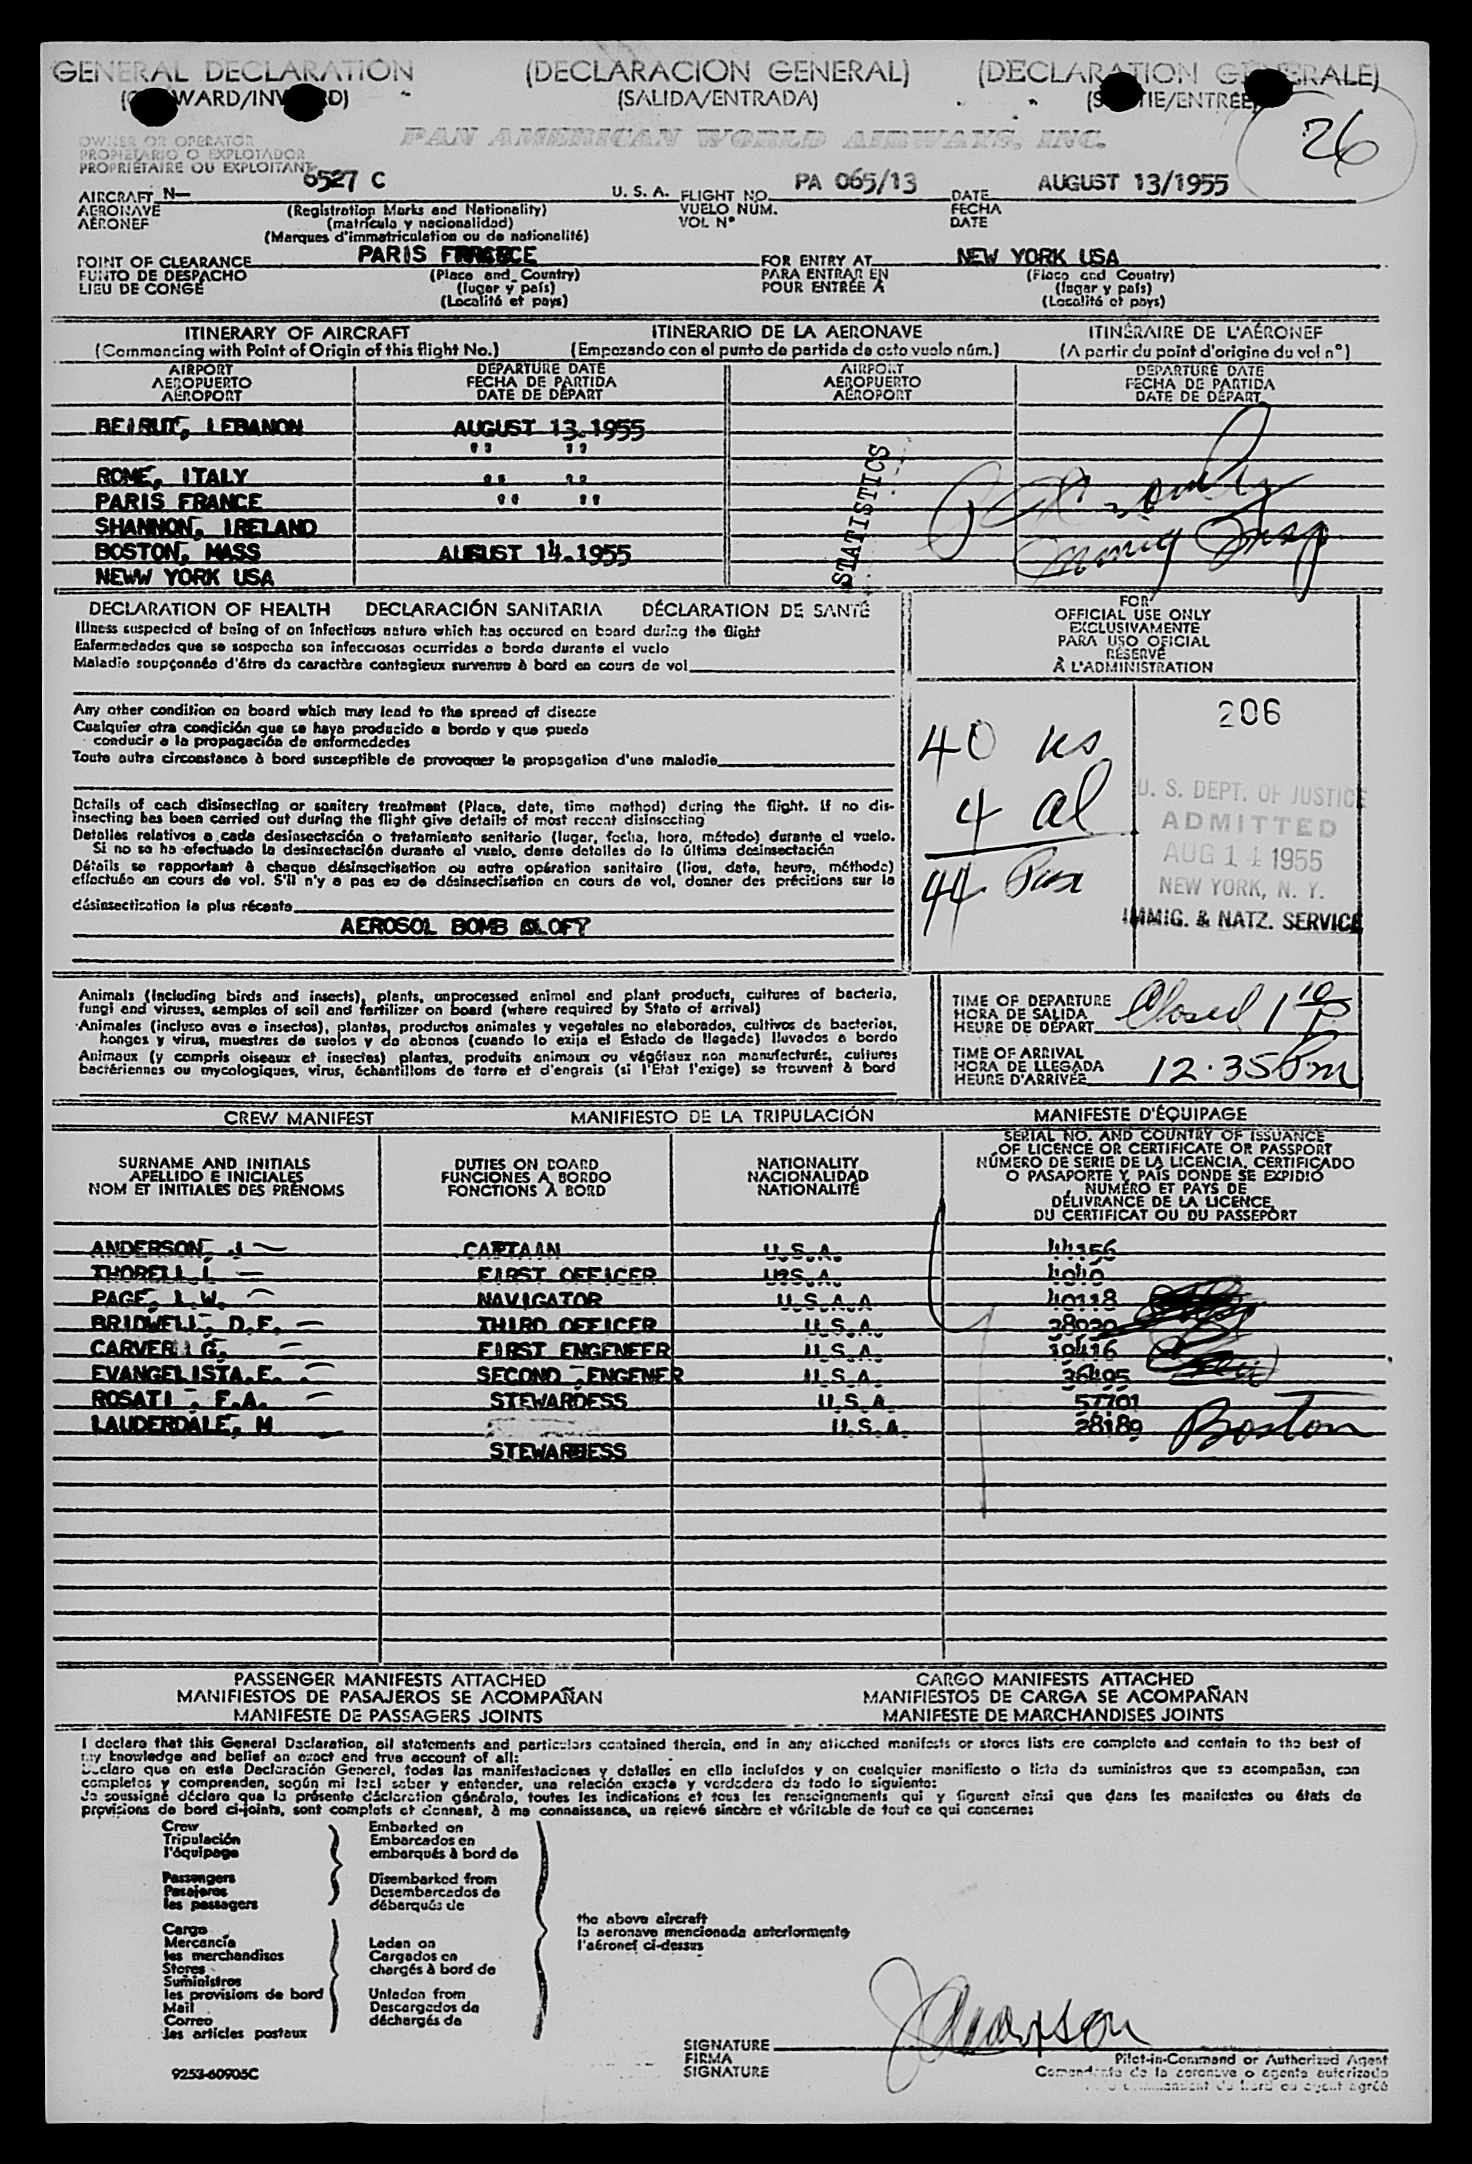 GENERAL DECLARATION (DECLARACION GENERAL) (DECLARATION GENERALE)
WARD/INWARD) (SALIDA/ENTRADA) (SORTIE/ENTREE)
26
OWNER OR OPERATOR PAN AMERICAN WORLD AIRWAYS, INC.
PROPIETARIO O EXPLOTADOR
PROPRIÉTAIRE OU EXPLOITANT
AIRCRAFT N— 6527 C U. S. A. FLIGHT NO. PA 065/13 DATE AUGUST 13/1955
AERONAVE (Registration Marks and Nationality) VUELO NÚM. FECHA
AÉRONEF (matrícula y nacionalidad) VOL N° DATE
(Marques d'immatriculation ou de nationalité)
POINT OF CLEARANCE PARIS FRANCE FOR ENTRY AT NEW YORK USA
PUNTO DE DESPACHO (Place and Country) PARA ENTRAR EN (Place and Country)
LIEU DE CONGÉ (lugar y país) POUR ENTRÉE À (lugar y país)
(Localité et pays) (Localité et pays)
ITINERARY OF AIRCRAFT ITINERARIO DE LA AERONAVE ITINÉRAIRE DE L'AÉRONEF
(Commencing with Point of Origin of this flight No.) (Empezando con el punto de partida de este vuelo núm.) (A partir du point d'origine du vol n°)
AIRPORT DEPARTURE DATE AIRPORT DEPARTURE DATE
AEROPUERTO FECHA DE PARTIDA AEROPUERTO FECHA DE PARTIDA
AÉROPORT DATE DE DÉPART AÉROPORT DATE DE DÉPART
BEIRUT, LEBANON AUGUST 13.1955
" "
ROME, ITALY " "
PARIS FRANCE " "
SHANNON, IRELAND
BOSTON, MASS AUGUST 14.1955
NEWW YORK USA
STATISTICS
DECLARATION OF HEALTH DECLARACIÓN SANITARIA DÉCLARATION DE SANTÉ
Illness suspected of being of an infectious nature which has occured on board during the flight
Enfermedades que se sospecha son infecciosas ocurridas a bordo durante el vuelo
Maladie soupçonnée d'être de caractère contagieux survenue à bord en cours de vol
Any other condition on board which may lead to the spread of disease
Cualquier otra condición que se haya producido a bordo y que pueda
conducir a la propagación de enfermedades
Toute autre circonstance à bord susceptible de provoquer la propagation d'une maladie
Details of each disinsecting or sanitary treatment (Place, date, time method) during the flight. If no dis-
insecting has been carried out during the flight give details of most recent disinsecting
Detalles relativos a cada desinsectación o tratamiento sanitario (lugar, fecha, hora, método) durante el vuelo.
Si no se ha efectuado la desinsectación durante el vuelo, dense detalles de la última desinsectación
Détails se rapportant à chaque désinsectisation ou autre opération sanitaire (lieu, date, heure, méthode)
effectuée en cours de vol. S'il n'y a pas eu de désinsectisation en cours de vol, donner des précisions sur la
désinsectisation la plus récente
AEROSOL BOMB ALOFT
FOR
OFFICIAL USE ONLY
EXCLUSIVAMENTE
PARA USO OFICIAL
RÉSERVÉ
À L'ADMINISTRATION
40 us
4 al
44 Pass
206
U. S. DEPT. OF JUSTICE
ADMITTED
AUG 14 1955
NEW YORK, N. Y.
IMMIG. & NATZ. SERVICE
Animals (including birds and insects), plants, unprocessed animal and plant products, cultures of bacteria,
fungi and viruses, samples of soil and fertilizer on board (where required by State of arrival)
Animales (incluso aves e insectos), plantas, productos animales y vegetales no elaborados, cultivos de bacterias,
hongos y virus, muestras de suelos y de abonos (cuando lo exija el Estado de llegada) llevados a bordo
Animaux (y compris oiseaux et insectes) plantes, produits animaux ou végétaux non manufacturés, cultures
bactériennes ou mycologiques, virus, échantillons de terre et d'engrais (si l'Etat l'exige) se trouvent à bord
TIME OF DEPARTURE Closed 1 10 P
HORA DE SALIDA
HEURE DE DÉPART
TIME OF ARRIVAL 12.35 Pm
HORA DE LLEGADA
HEURE D'ARRIVÉE
CREW MANIFEST MANIFIESTO DE LA TRIPULACIÓN MANIFESTE D'ÉQUIPAGE
SURNAME AND INITIALS
APELLIDO E INICIALES
NOM ET INITIALES DES PRÉNOMS
DUTIES ON BOARD
FUNCIONES A BORDO
FONCTIONS À BORD
NATIONALITY
NACIONALIDAD
NATIONALITÉ
SERIAL NO. AND COUNTRY OF ISSUANCE
OF LICENCE OR CERTIFICATE OR PASSPORT
NÚMERO DE SERIE DE LA LICENCIA, CERTIFICADO
O PASAPORTE Y PAÍS DONDE SE EXPIDIÓ
NUMÉRO ET PAYS DE
DÉLIVRANCE DE LA LICENCE,
DU CERTIFICAT OU DU PASSEPORT
ANDERSON, J CAPTAIN U.S.A. 44156
THORELL.L FIRST OFFICER U.S.A. 4040
PAGE, L.W. NAVIGATOR U.S.A.A 40118
BRIDWELL, D.F. THIRD OFFICER U.S.A. 28020
CARVER G. FIRST ENGENEER U.S.A. 19416
EVANGELISTA.E. SECOND ENGENER U.S.A. 36495
ROSATI , F.A. STEWARDESS U.S.A. 57701
LAUDERDALE, M U.S.A. 28189 Boston
STEWARDESS
PASSENGER MANIFESTS ATTACHED CARGO MANIFESTS ATTACHED
MANIFIESTOS DE PASAJEROS SE ACOMPAÑAN MANIFIESTOS DE CARGA SE ACOMPAÑAN
MANIFESTE DE PASSAGERS JOINTS MANIFESTE DE MARCHANDISES JOINTS
I declare that this General Declaration, all statements and particulars contained therein, and in any attached manifests or stores lists are complete and contain to the best of
my knowledge and belief an exact and true account of all:
Declaro que en esta Declaración General, todas las manifestaciones y detalles en ella incluídos y en cualquier manifiesto o lista de suministros que se acompañan, son
completos y comprenden, según mi leal saber y entender, una relación exacta y verdadera de todo lo siguiente:
Je soussigné déclare que la présente déclaration générale, toutes les indications et tous les renseignements qui y figurent ainsi que dans les manifestes ou états de
provisions de bord ci-joints, sont complets et donnent, à ma connaissance, un relevé sincère et véritable de tout ce qui concerne:
Crew Embarked on
Tripulación Embarcados en
l'équipage embarqués à bord de
Passengers Disembarked from
Pasajeros Desembarcados de
les passagers débarqués de
the above aircraft
la aeronave mencionada anteriormente
l'aéronef ci-dessus
Cargo
Mercancía Laden on
les merchandises Cargados en
Stores chargés à bord de
Suministros
les provisions de bord Unladen from
Mail Descargados de
Correo déchargés de
les articles postaux
SIGNATURE J Anderson
FIRMA Pilot-in-Command or Authorized Agent
SIGNATURE Comandante de la aeronave o agente autorizado
9253-60905C